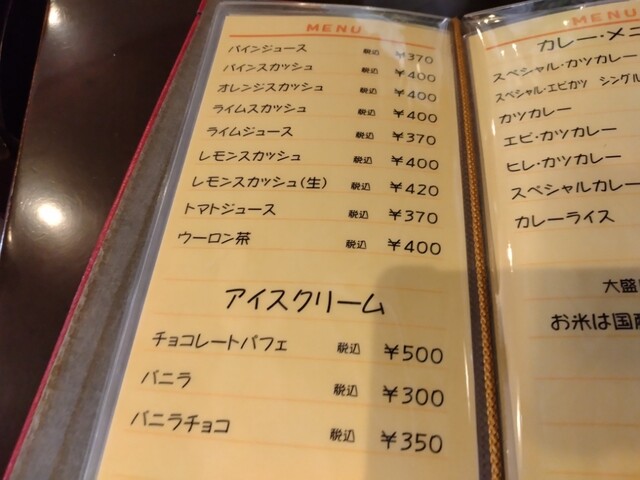 MENU
パインジュース 税込 ¥370
パインスカッシュ 税込 ¥400
オレンジスカッシュ 税込 ¥400
ライムスカッシュ 税込 ¥400
ライムジュース 税込 ¥370
レモンスカッシュ 税込 ¥400
レモンスカッシュ(生) 税込 ¥420
トマトジュース 税込 ¥370
ウーロン茶 税込 ¥400
アイスクリーム
チョコレートパフェ 税込 ¥500
バニラ 税込 ¥300
バニラチョコ 税込 ¥350
MENU
カレー・メニ
スペシャル・カツカレー
スペシャル・エビカツ シングル
カツカレー
エビ・カツカレー
ヒレ・カツカレー
スペシャルカレー
カレーライス
大盛
お米は国産